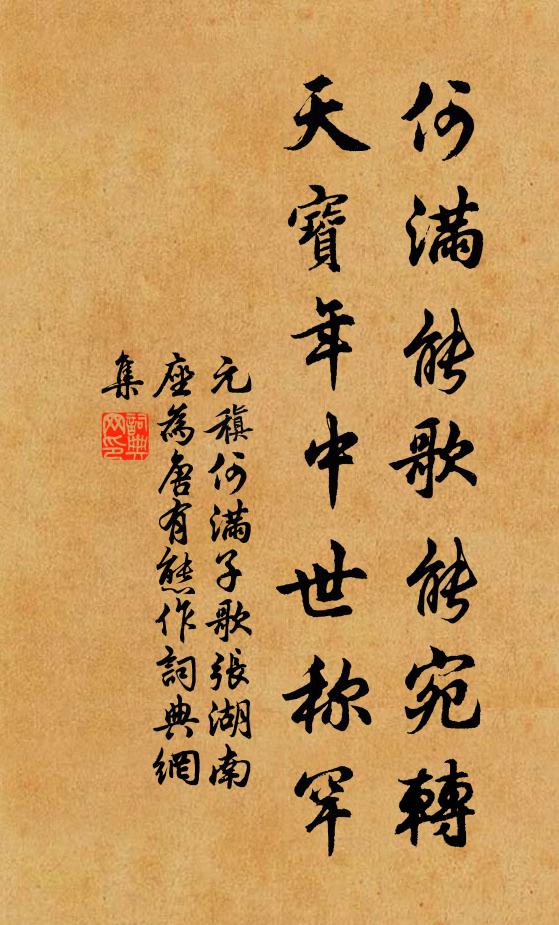 何满能歌能宛轉
天寶年中世称罕
元稹何满子歌張湖南
座為唐有熊作詞典網
集
詞典
网印